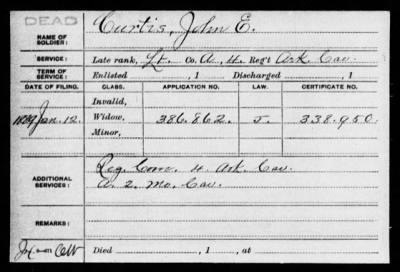 DEAD
NAME OF SOLDIER: Curtis, John E.
SERVICE: Late rank, Lt. Co. A, 4. Reg't Ark Cav.
TERM OF SERVICE: Enlisted , 1 Discharged , 1
DATE OF FILING. CLASS. APPLICATION NO. LAW. CERTIFICATE NO.
Invalid,
Jan. 12. Widow, 386.862. J. 338.950
Minor,
ADDITIONAL SERVICES: Reg. Com. 4. Ark. Cav.
A. 2. Mo. Cav.
REMARKS:
Died , 1 , at